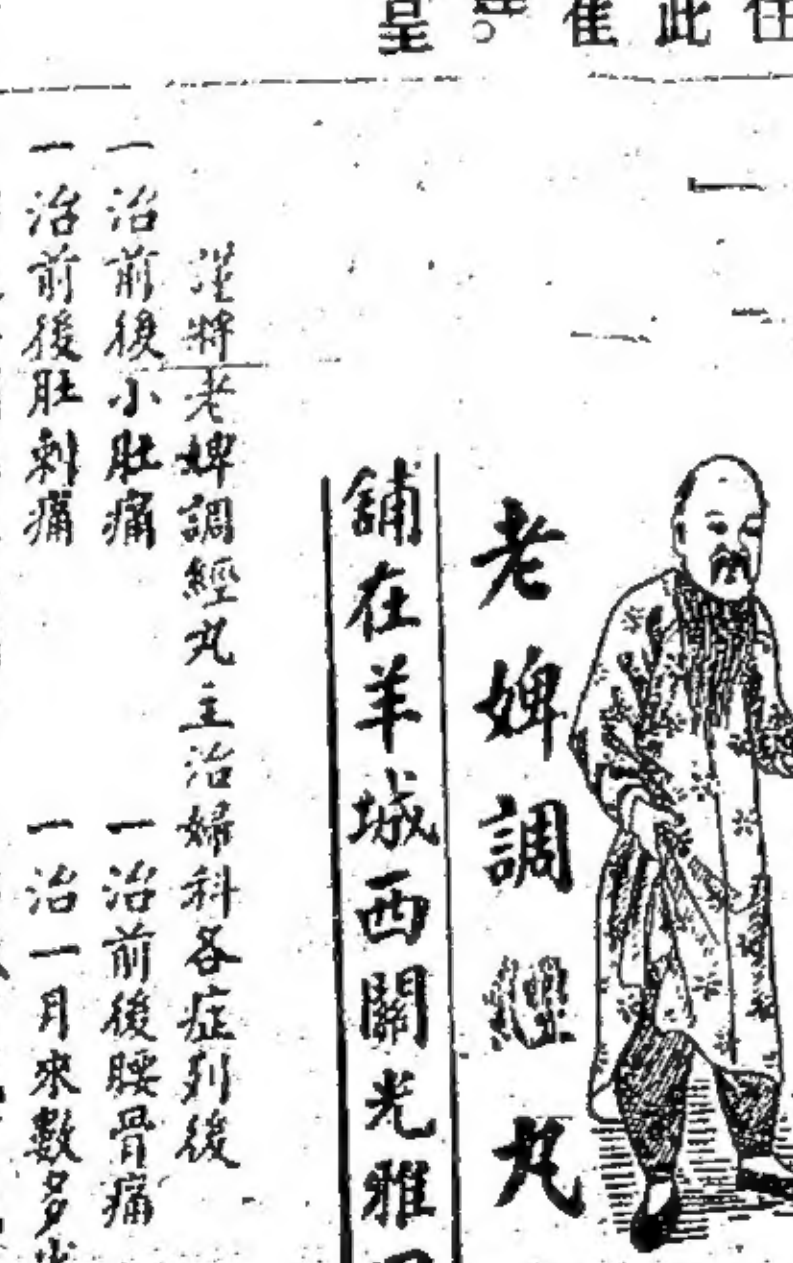 住
此
隹
皇
老婢調經丸
舖在羊城西關光雅
謹將老婢調經丸主治婦科各症列後
一治前後小肚痛
一治前後腰骨痛
一治前後肚刺痛
一治一月來數多少